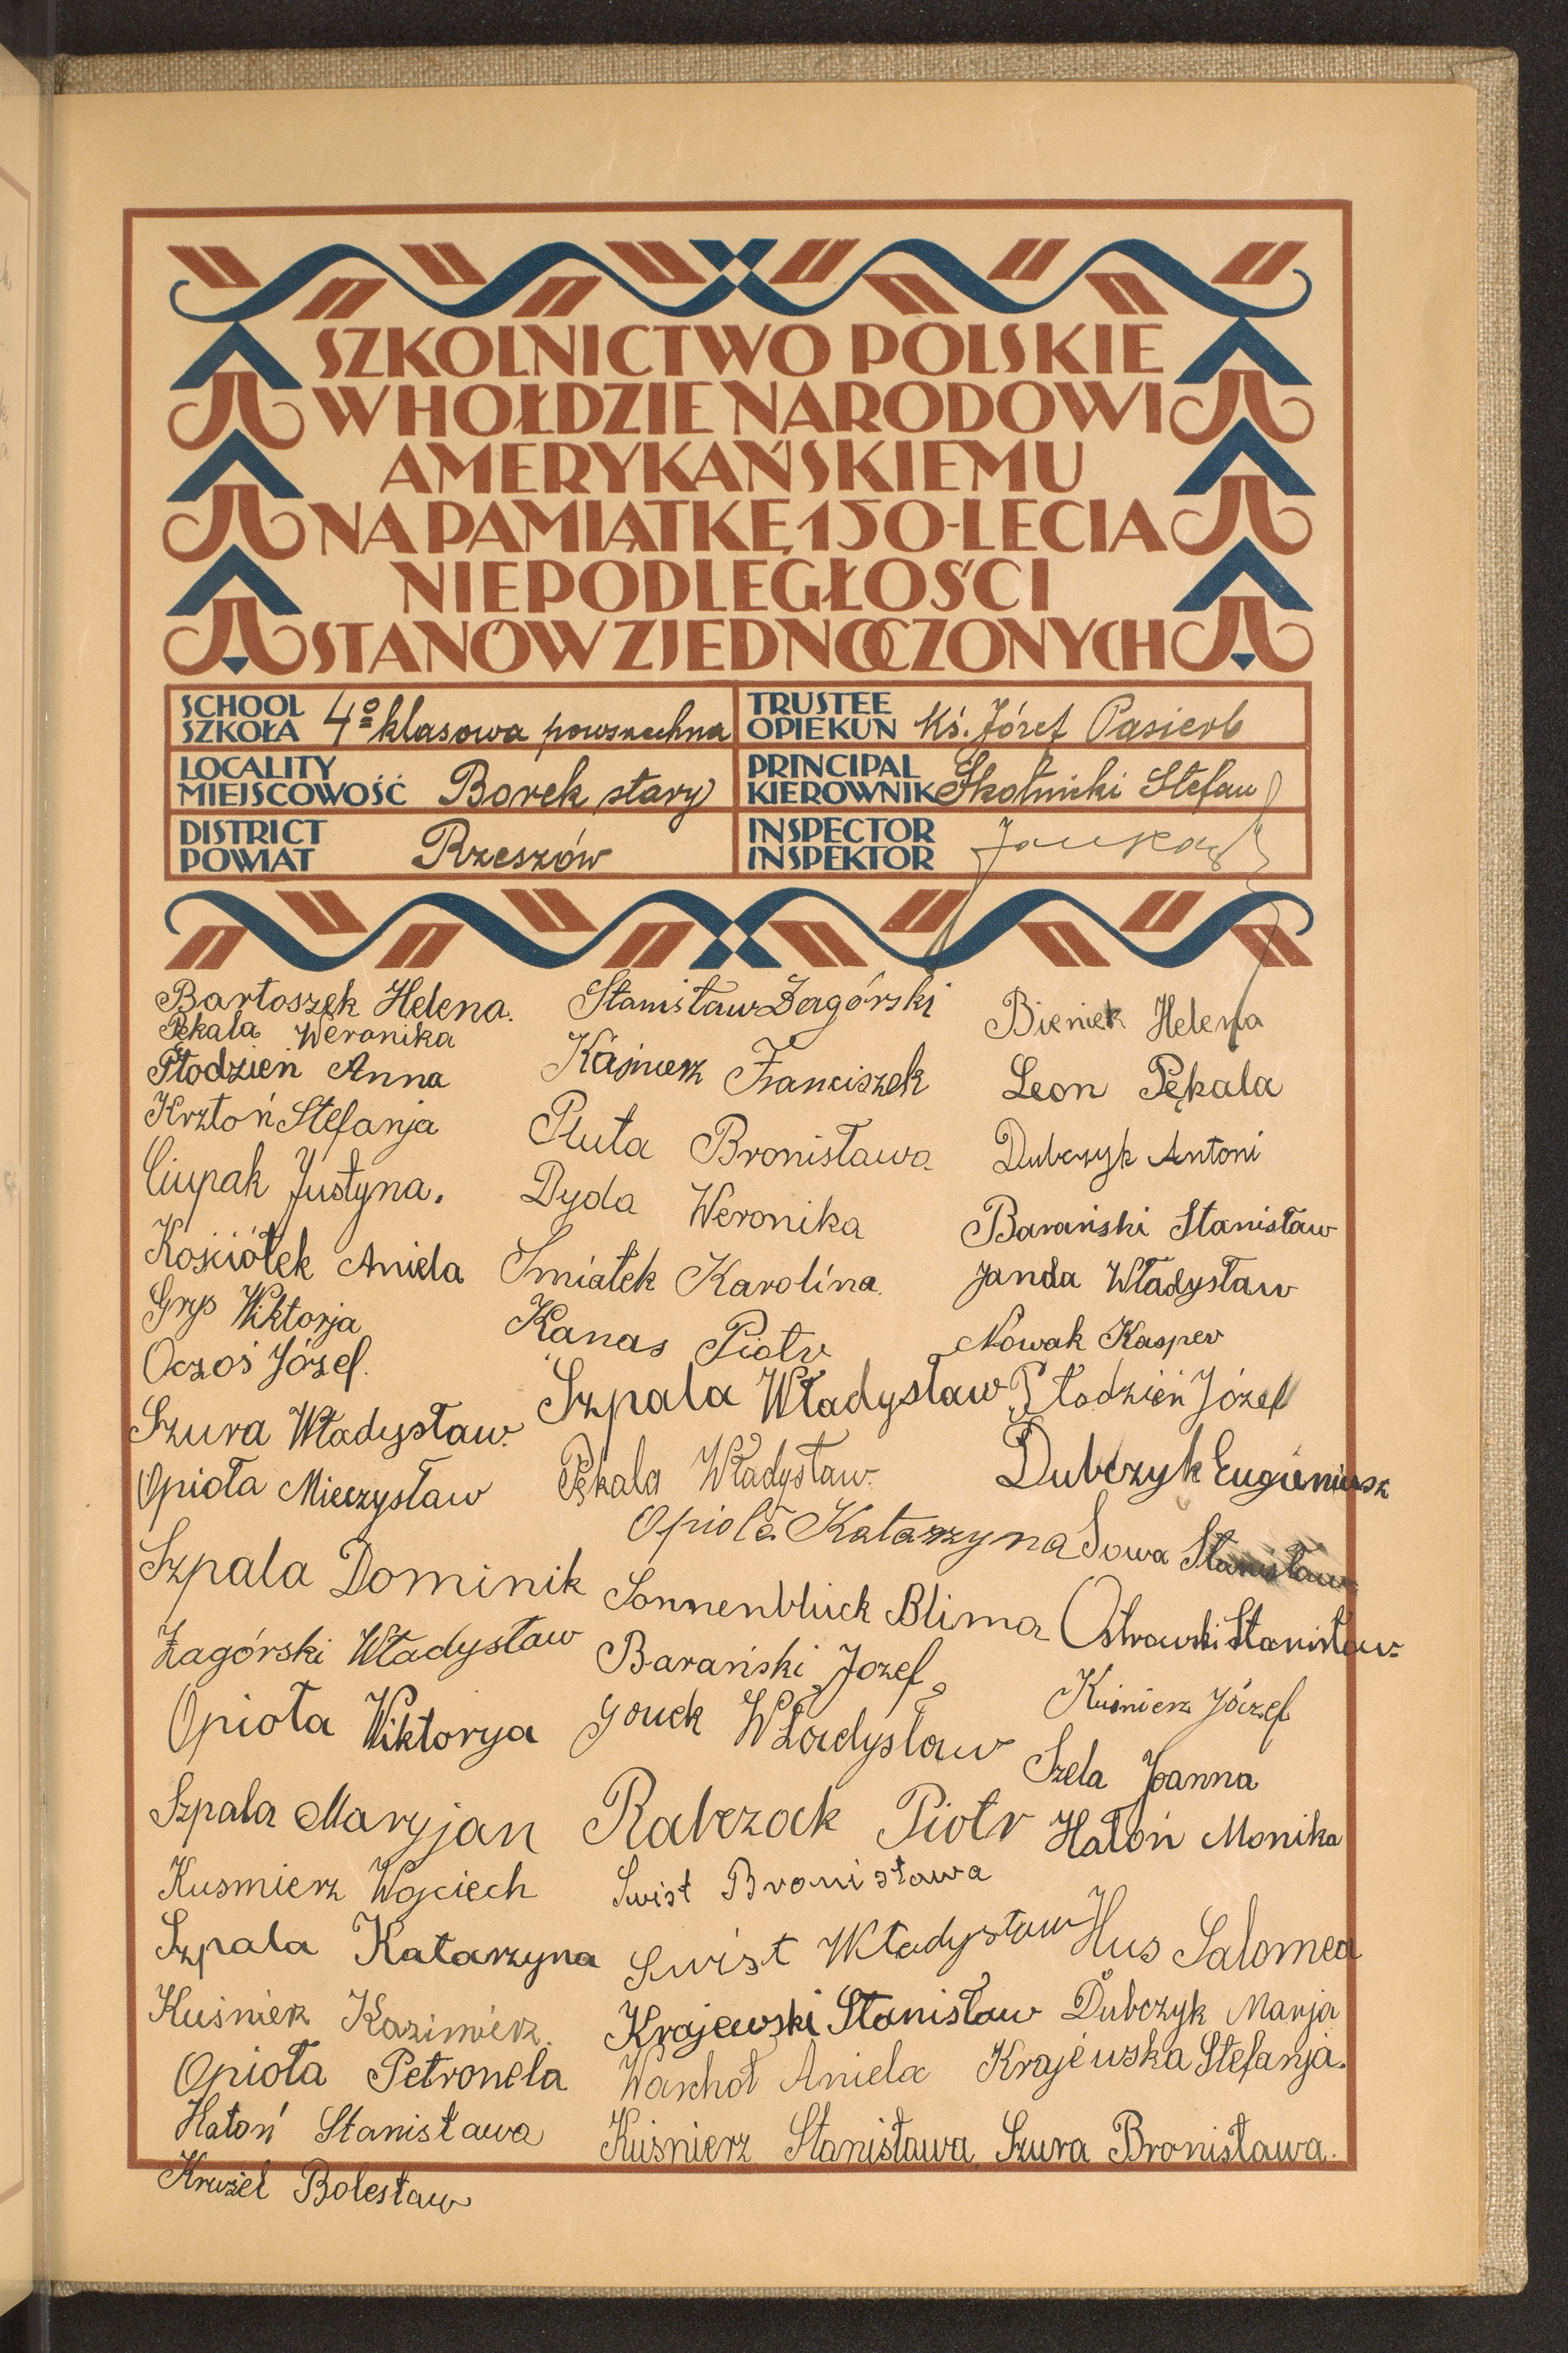 SZKOLNICTWO POLSKIE
W HOŁDZIE NARODOWI
AMERYKAŃSKIEMU
NA PAMIĄTKĘ 150-LECIA
NIEPODLEGŁOŚCI
STANÓW ZJEDNOCZONYCH
SCHOOL
SZKOŁA 4º klasowa powszechna
TRUSTEE
OPIEKUN Ks. Józef Pasierb
LOCALITY
MIEJSCOWOŚĆ Borek stary
PRINCIPAL
KIEROWNIK Skotnicki Stefan
DISTRICT
POWIAT Rzeszów
INSPECTOR
INSPEKTOR
Bartoszek Helena.
Pękala Weronika
Płodzień Anna
Krztoń Stefanja
Ciupak Justyna.
Kościółek Aniela
Grys Wiktorja
Oczoś Józef.
Szura Władysław.
Opioła Mieczysław
Szpala Dominik
Zagórski Władysław
Opioła Wiktorya
Szpala Maryjan
Kusmierz Wojciech
Szpala Katarzyna
Kuśnierz Kazimierz.
Opioła Petronela
Hałoń Stanisława
Krużel Bolesław
Stanisław Zagórski
Kaśnierz Franciszek
Pluta Bronisława
Dyda Weronika
Smiałek Karolina.
Kanas Piotr
Szpala Władysław
Pękala Władysław.
Opioła Katarzyna
Sonnenblick Blima
Barański Jozef
Gouek Władysław
Rabczak Piotr
Swist Bronisława
Swist Władysław
Krajewski Stanisław
Warchoł Aniela
Kuśnierz Stanisława
Bieniek Helena
Leon Pękala
Dubczyk Antoni
Barański Stanisław
Janda Władysław
Nowak Kasper
Płodzień Józef
Dubczyk Eugieniusz
Sowa Stanisław
Ostrowski Stanisław.
Kuśnierz Józef
Szela Joanna
Hałoń Monika
Hus Salomea
Dubczyk Marja
Krajewska Stefanja.
Szura Bronisława.